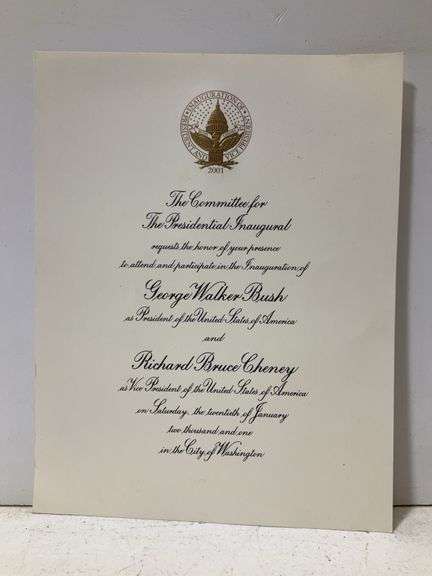 INAUGURATION OF
PRESIDENT AND
VICE PRESIDENT
2001
The Committee for
The Presidential Inaugural
requests the honor of your presence
to attend and participate in the Inauguration of
George Walker Bush
as President of the United States of America
and
Richard Bruce Cheney
as Vice President of the United States of America
on Saturday, the twentieth of January
two thousand and one
in the City of Washington